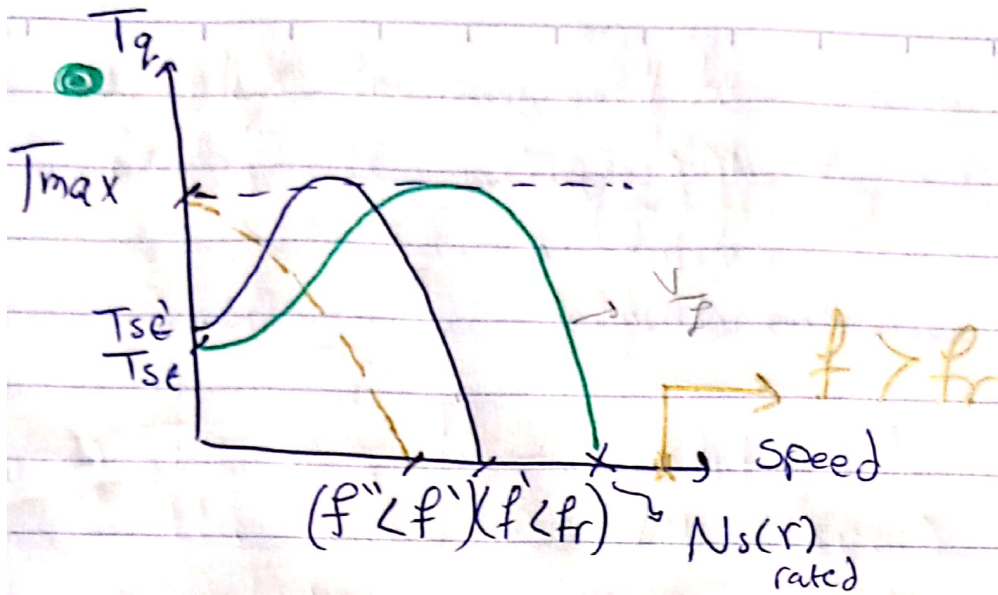 Tq
Tmax
V/f
Tst'
Tst
f > fr
speed
(f'' < f') (f' < fr)
Ns(r)
rated